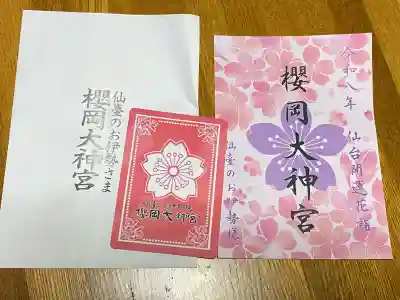 仙臺のお伊勢さま
櫻岡大神宮
櫻岡大神宮
令和八年
仙台開運花詣
櫻岡大神宮
仙臺のお伊勢様